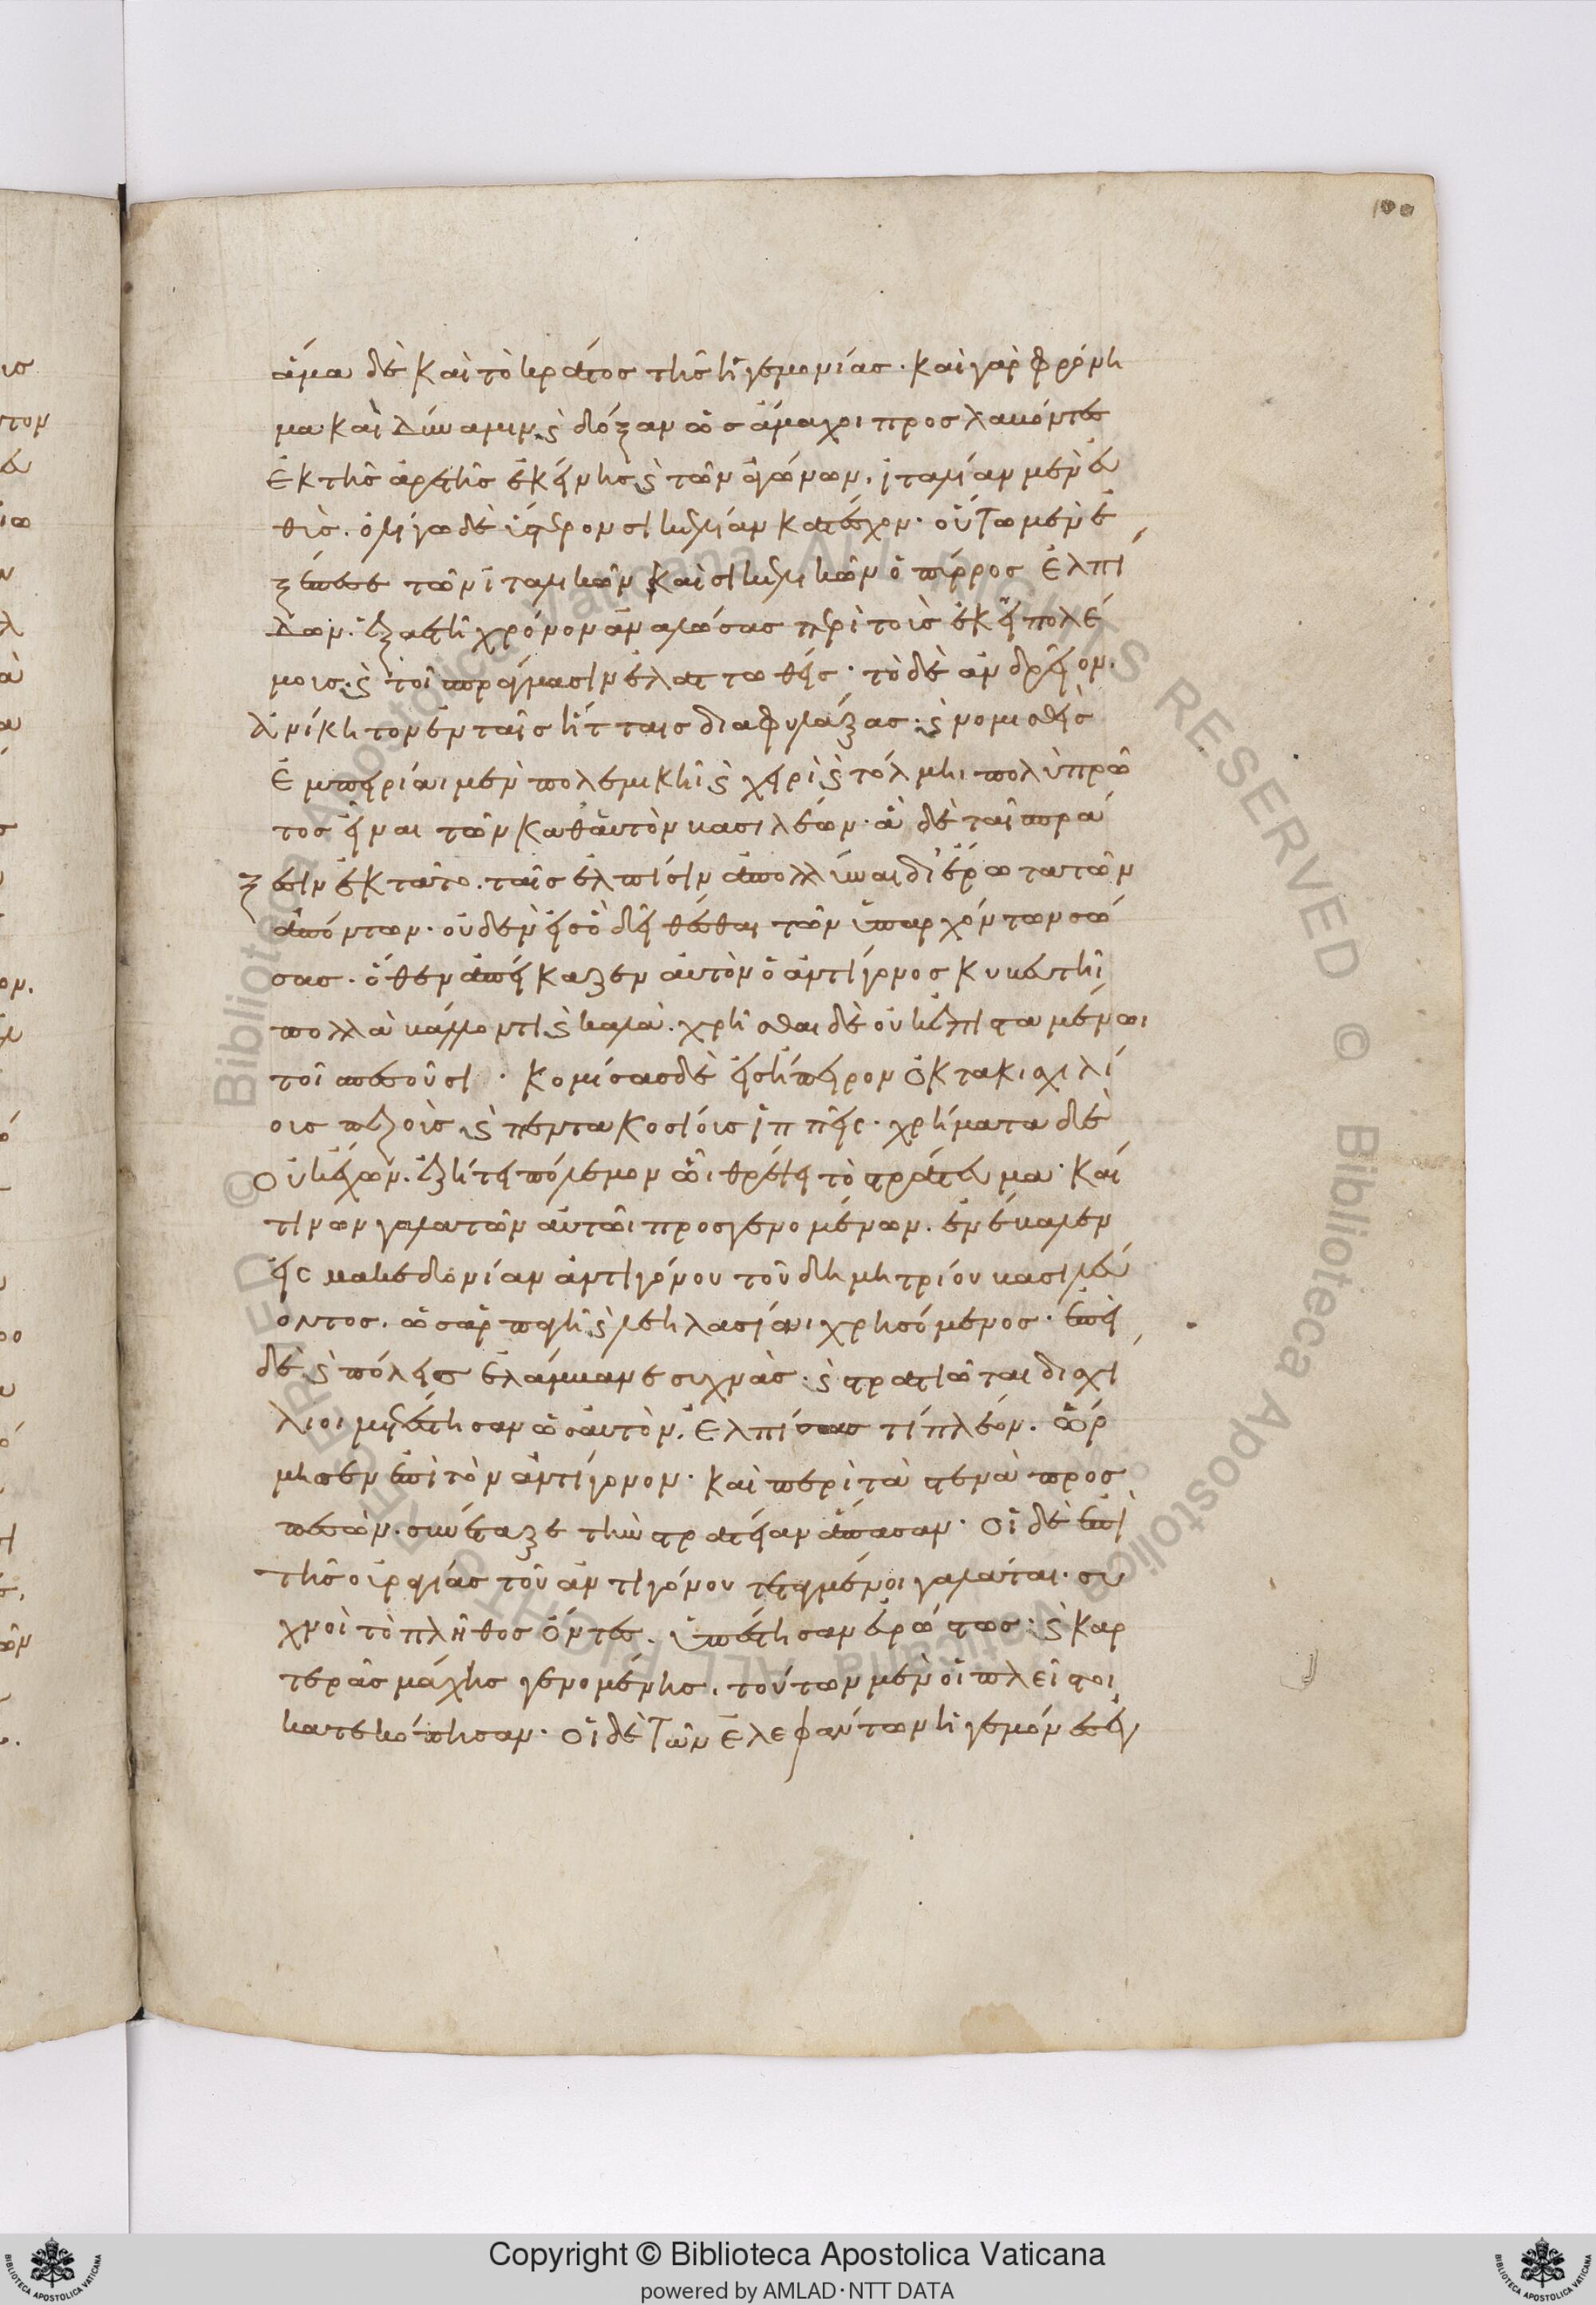 100
ἅμα δὲ καὶ τὸ κράτος τῆς ἡγεμονίας· καὶ γὰρ φρόνη
μα καὶ δύναμιν ϛ δόξαν ὡς ἄμαχοι προσλαβόντες
ἐκ τῆς ἀρετῆς ἐκείνης ϛ τῶν ἀγώνων. ἰταλίαν μὲν εὐ
θὺς. ὀλίγω δὲ ὕστερον σικελίαν κατέσχον· οὕτω μὲν ἐ
ξέπεσε τῶν ἰταλικῶν καὶ σικελικῶν ὁ πύρρος ἐλπί
δων. ἑξαετῆ χρόνον ἀναλώσας περὶ τοὺς ἐκεῖ πολέ
μους. ϛ τοῖς πράγμασιν ἐλαττωθείς· τὸ δὲ ἀνδρεῖον.
ἀνίκητον ἐν ταῖς ἥτταις διαφυλάξας. ϛ νομισθεὶς
ἐμπειρίαι μὲν πολεμικῆ ϛ χειρὶ ϛ τόλμηι πολὺ πρῶ
τος εἶναι τῶν καθ αὑτὸν βασιλέων· ἃ δὲ ταῖς πρά
ξεσιν ἐκτᾶτο. ταῖς ἐλπίσιν ἀπολλύναι δι ἔρωτα τῶν
ἀπόντων· οὐδὲν εἰς ὃ δεῖ θέσθαι τῶν ὑπαρχόντων σώ
σας· ὅθεν ἀπείκαζεν αὐτὸν ὁ ἀντίγονος κυβευτῆι
πολλὰ βάλλοντι ϛ καλὰ. χρῆσθαι δὲ οὐκ ἐπισταμένωι
τοῖς πεσοῦσι· κομίσας δὲ εἰς ἤπειρον ὀκτακισχιλί
ους πεζοὺς ϛ πεντακοσίους ἱππεῖς· χρήματα δὲ
οὐκ ἔχων. ἐζήτει πόλεμον ὧι θρέψει τὸ στράτευμα· καί
τινων γαλατῶν αὐτῶι προσγενομένων. ἐνέβαλεν
εἰς μακεδονίαν ἀντιγόνου τοῦ δημητρίου βασιλεύ
οντος. ὡς ἁρπαγῆ ϛ λεηλασίαι χρησόμενος· ἐπεὶ
δὲ ϛ πόλεις ἐλάμβανε συχνὰς· ϛ στρατιῶται δισχί
λιοι μετέστησαν ὡς αὐτὸν. ἐλπίσας τί πλέον. ὥρ
μησεν ἐπὶ τὸν ἀντίγονον· καὶ περὶ τὰ στενὰ προσ
πεσὼν. συνετάραξε τὴν στρατείαν ἅπασαν· οἱ δὲ ἐπὶ
τῆς οὐραγίας τοῦ ἀντιγόνου τεταγμένοι γαλάται. συ
χνοὶ τὸ πλῆθος ὄντες. ὑπέστησαν εὐρώστως· ϛ καρ
τερᾶς μάχης γενομένης. τούτων μὲν οἱ πλεῖστοι
κατεκόπησαν· οἱ δὲ τῶν ἐλεφάντων ἡγεμόνες ἐγ
Copyright © Biblioteca Apostolica Vaticana
powered by AMLAD·NTT DATA